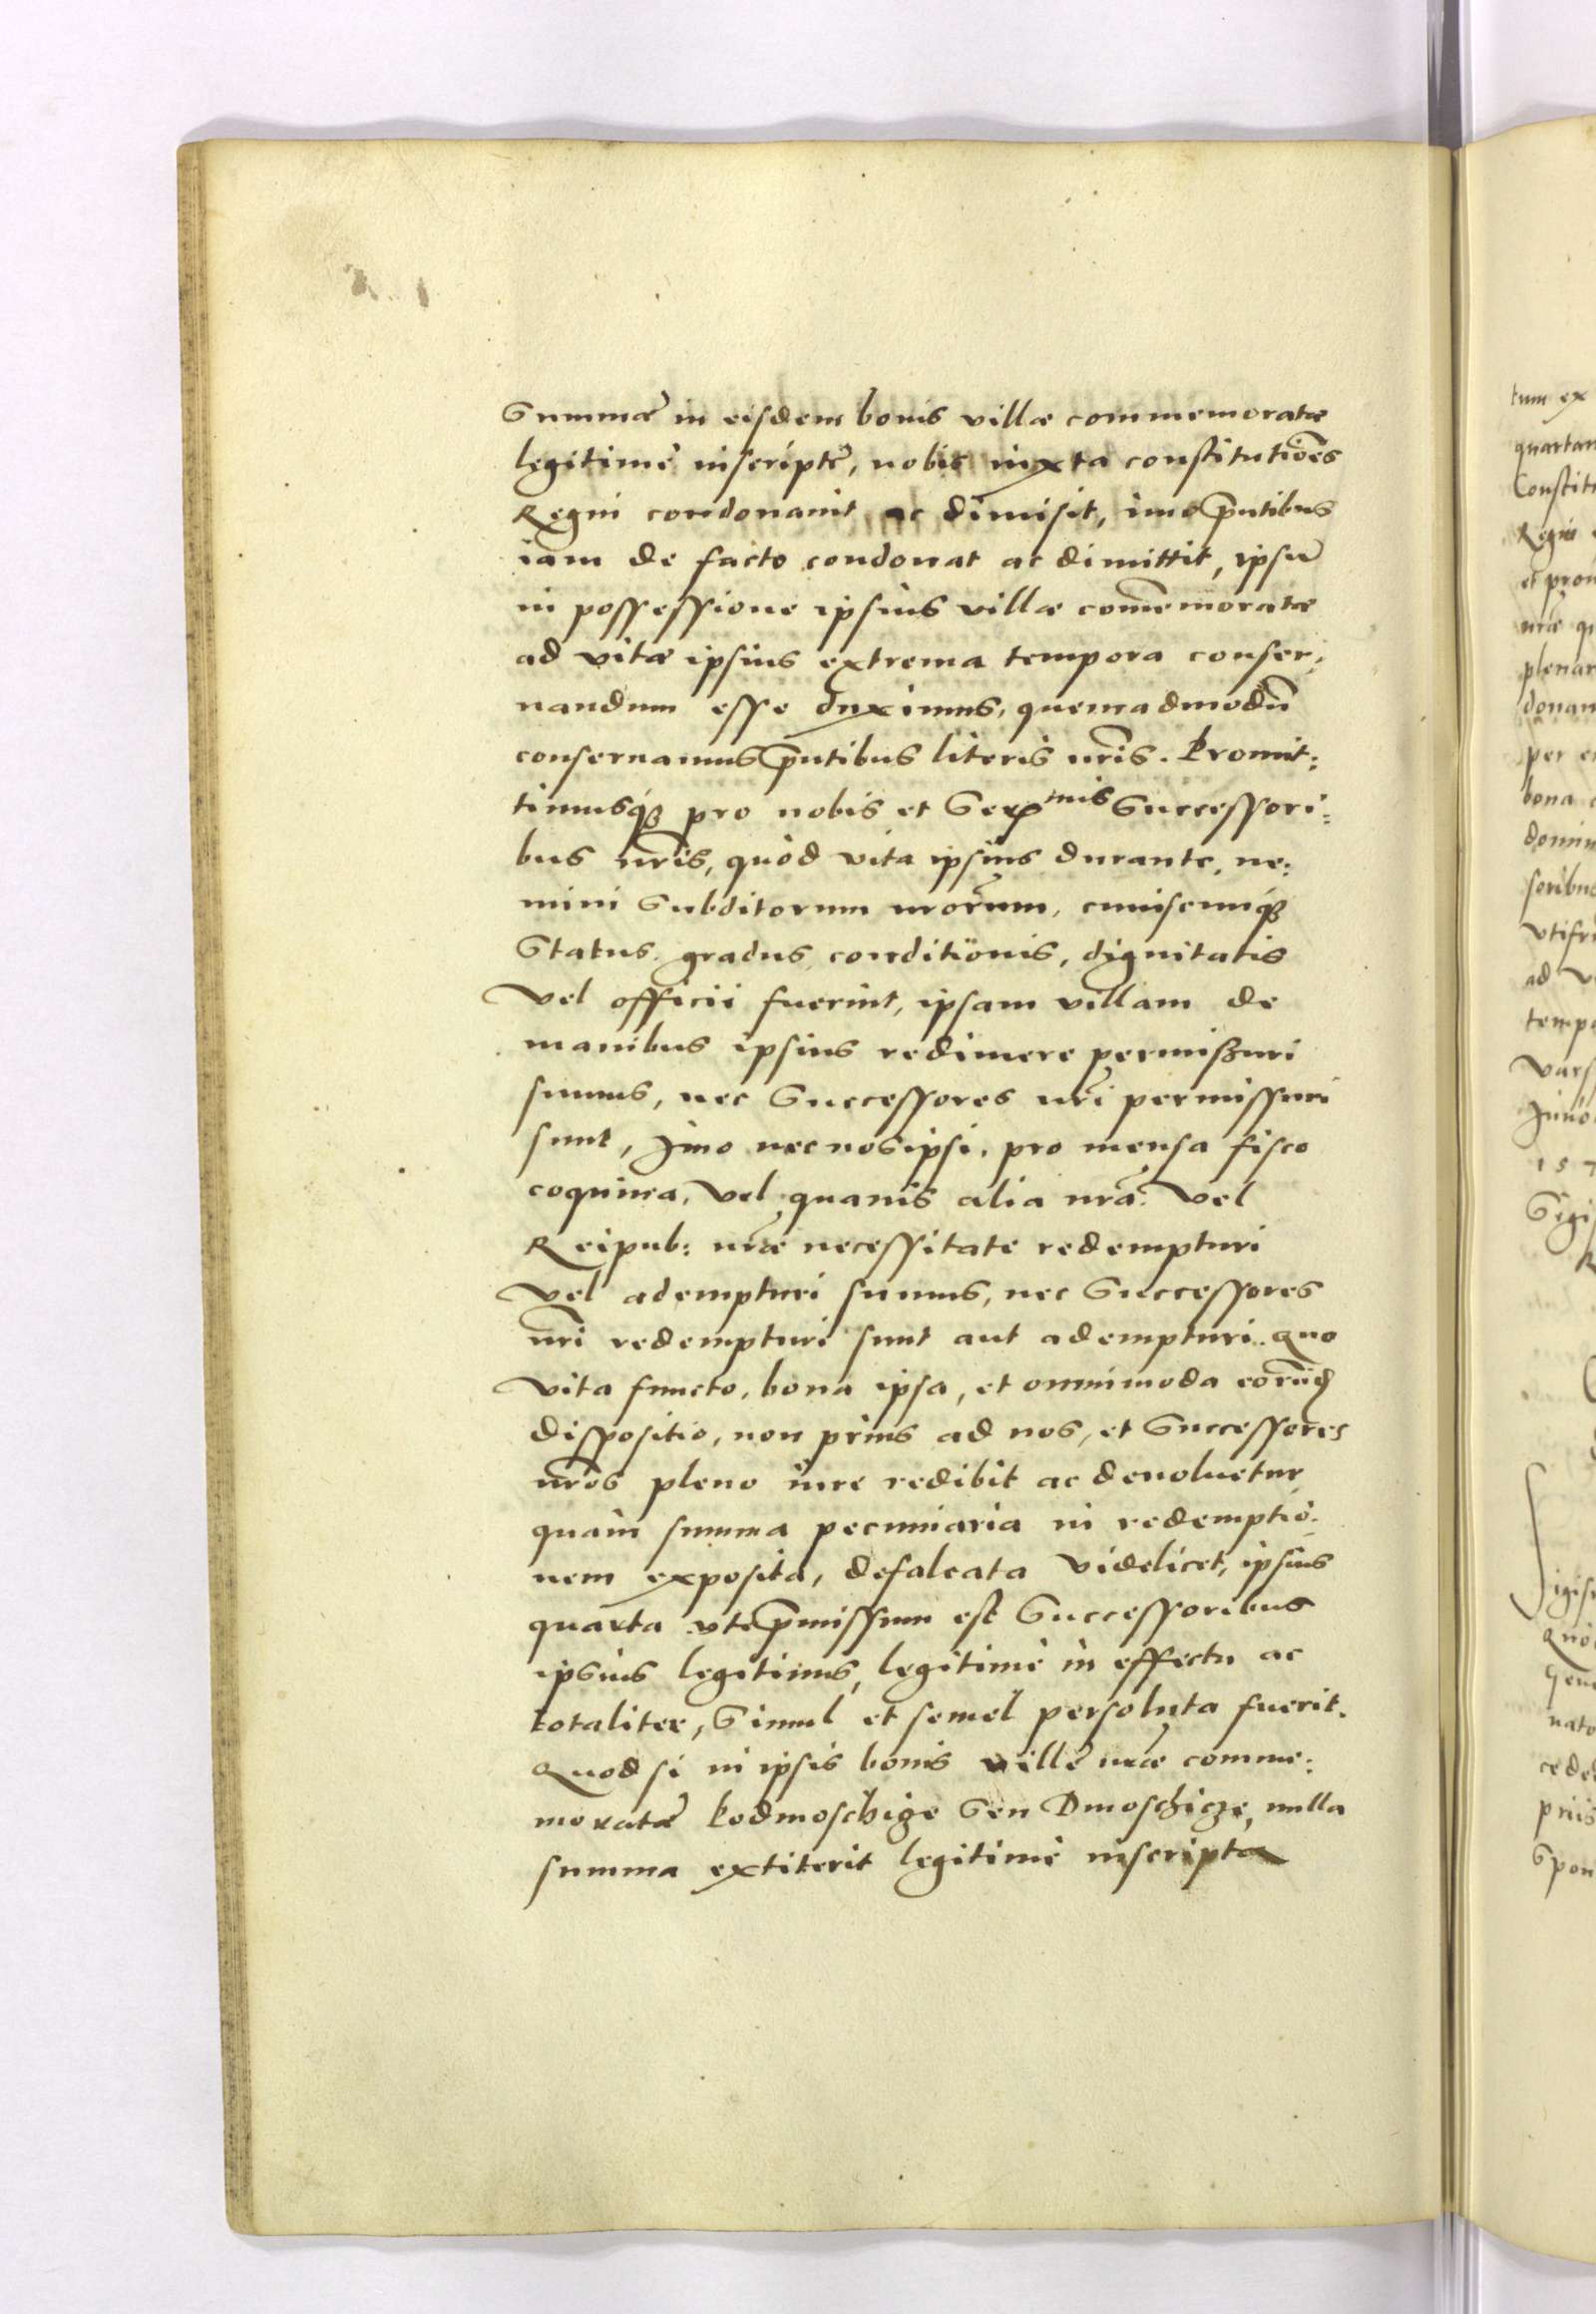 Summæ in eisdem bonis villæ commemoratæ
legitimè inscriptæ, nobis iuxta constitutiōes
Regni condonauit ac dimisit, imo p̄ntibus
iam de facto condonat ac dimittit, ipsū
in possessione ipsius villæ com̄emoratæ
ad vitæ ipsius extrema tempora conser,
uandum esse duximus, quemadmodū
conseruamus p̄ntibus literis nr̄is. Promit:
timusq₃ pro nobis et Ser^mis Successori:
bus nr̄is, quòd vita ipsius durante, ne:
mini Subditorum nr̄orum, cuiuscunq₃
Status, gradus, conditionis, dignitatis
vel officii fuerint, ipsam villam de
manibus ipsius redimere permißuri
sumus, nec Successores nr̄i permissuri
sunt, Jmo nec nos ipsi, pro mensa fisco
coquina, vel quauis alia nr̄a vel
Reipub: nr̄æ necessitate redempturi
vel adempturi sumus, nec Successores
nr̄i redempturi sunt aut adempturi. quo
vita functo, bona ipsa, et omnimoda eorūd
dispositio, non prius ad nos, et Successores
nr̄os pleno iure redibit ac deuoluetur,
quàm summa pecuniaria in redemptio:
nem exposita, defalcata videlicet, ipsius
quarta vt p̄missum est Successoribus
ipsius legitimis, legitimè in effectu ac
totaliter, Simul et semel persoluta fuerit.
Quod si in ipsis bonis villæ nr̄æ comme:
moratæ Podmoschize Seu Dmoschicze, nulla
summa extiterit legitimè inscripta
tum ex
quartam
Regni
et
plenar
donam
per
bona
domin
ad
157
Quò
nato